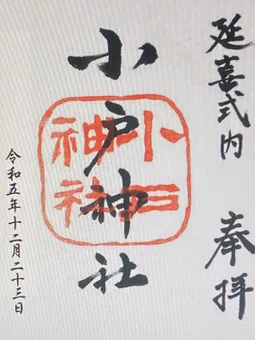 延喜式内 奉拝
小戸神社
小戸神社
令和五年十二月二十三日